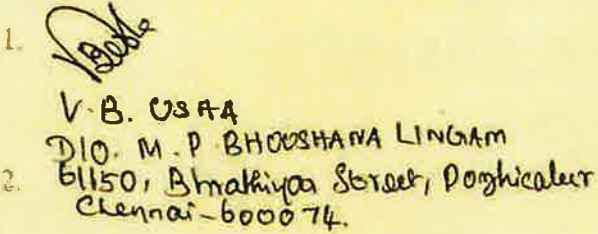 1.
V. B. USHA
D/O. M. P BHOOSHANA LINGAM
2. 61150, Bharathiyar Street, Pozhicalur
Chennai-600074.